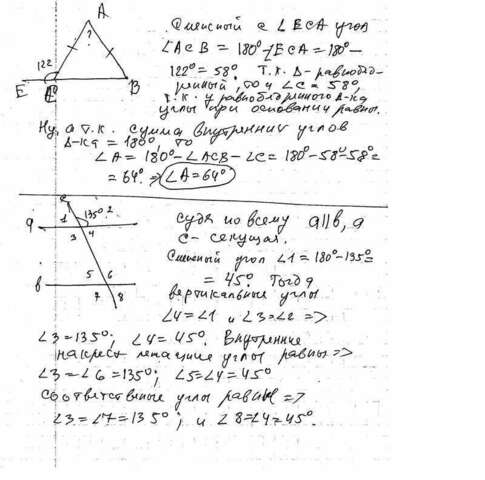 A
?
122
E
C
B
Смежный с ∠ECA угол
∠ACB = 180°-∠ECA = 180°-
122° = 58°. Т.К. Δ-равнобед-
ренный, то и ∠C = 58°,
т.к. у равнобедренного Δ-ка
углы при основании равны.
Ну, а т.к. сумма внутренних углов
Δ-ка = 180°, то
∠A = 180°-∠ACB-∠C = 180-58°-58°=
= 64°. => ∠A = 64°
c
1 135° 2
a
3 4
5 6
b
7 8
судя по всему a||b, а
c - секущая.
Смежный угол ∠1 = 180°-135°=
= 45°. Тогда
вертикальные углы
∠4 = ∠1 и ∠3 = ∠2 =>
∠3 = 135°; ∠4 = 45°. Внутренние
накрест лежащие углы равны =>
∠3 = ∠6 = 135°; ∠5 = ∠4 = 45°
Соответственные углы равны =>
∠3 = ∠7 = 135°; и ∠8 = ∠4 = 45°.